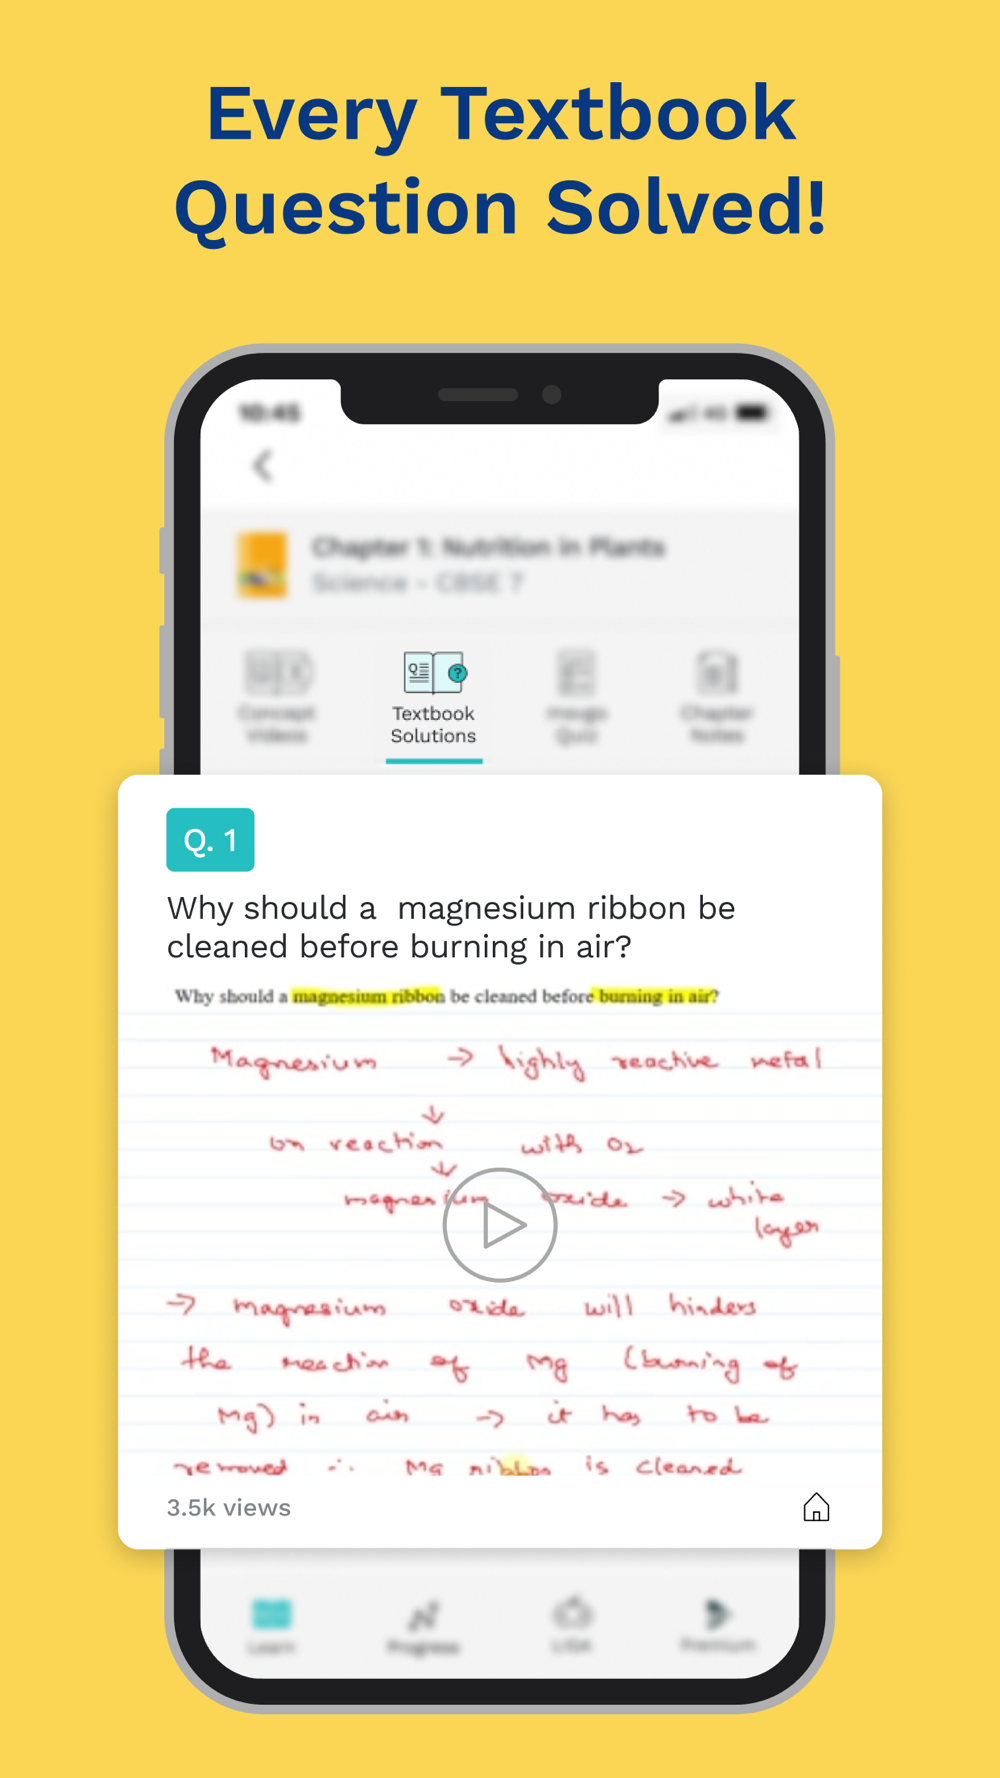 Every Textbook
Question Solved!
10:45
4G
Chapter 1: Nutrition in Plants
Science - CBSE 7
Concept
Videos
Textbook
Solutions
Quiz
Chapter
Notes
Q. 1
Why should a magnesium ribbon be
cleaned before burning in air?
Why should a magnesium ribbon be cleaned before burning in air?
Magnesium → highly reactive metal
↓
on reaction with O2
↓
magnesium oxide → white
layer
→ magnesium oxide will hinders
the reaction of Mg (burning of
Mg) in air → it has to be
removed ∴ Mg ribbon is cleaned
3.5k views
Learn
Progress
Premium